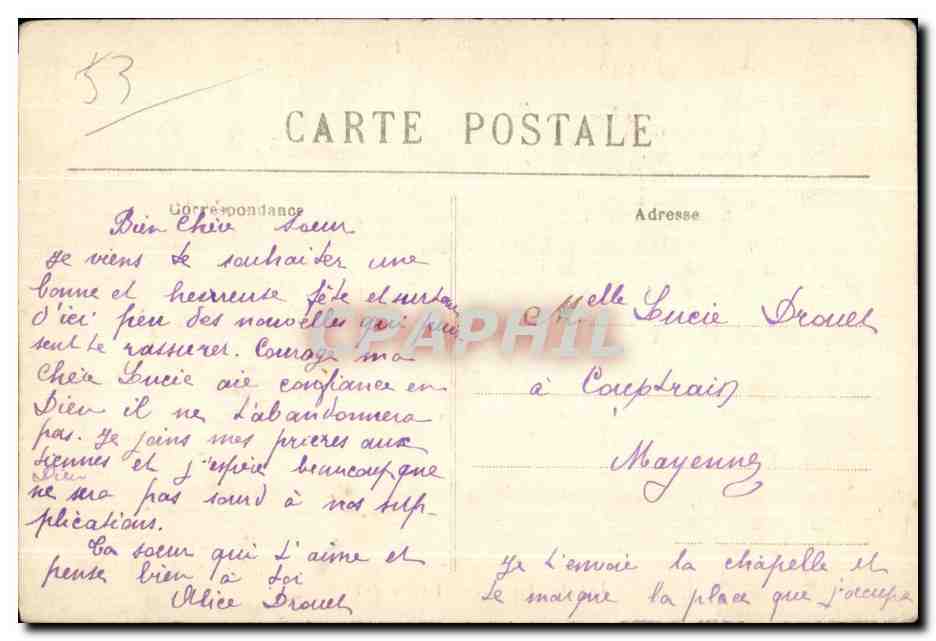 53
CARTE POSTALE
Correspondance
Bien Chère soeur
Je viens te souhaiter une
bonne et heureuse fête et surtout
d'ici peu des nouvelles qui puis
sent te rassurer. Courage ma
Chère Lucie aie confiance en
Dieu il ne t'abandonnera
pas. Je joins mes prieres aux
tiennes et j'espère beaucoup que
Dieu
ne sera pas sourd à nos sup-
plications.
Ta soeur qui t'aime et
pense bien à toi
Alice Drouet
Adresse
Melle Lucie Drouet
à Couptrain
Mayenne
Je t'envoie la chapelle et
te marque la place que j'occupe
CPAPHIL